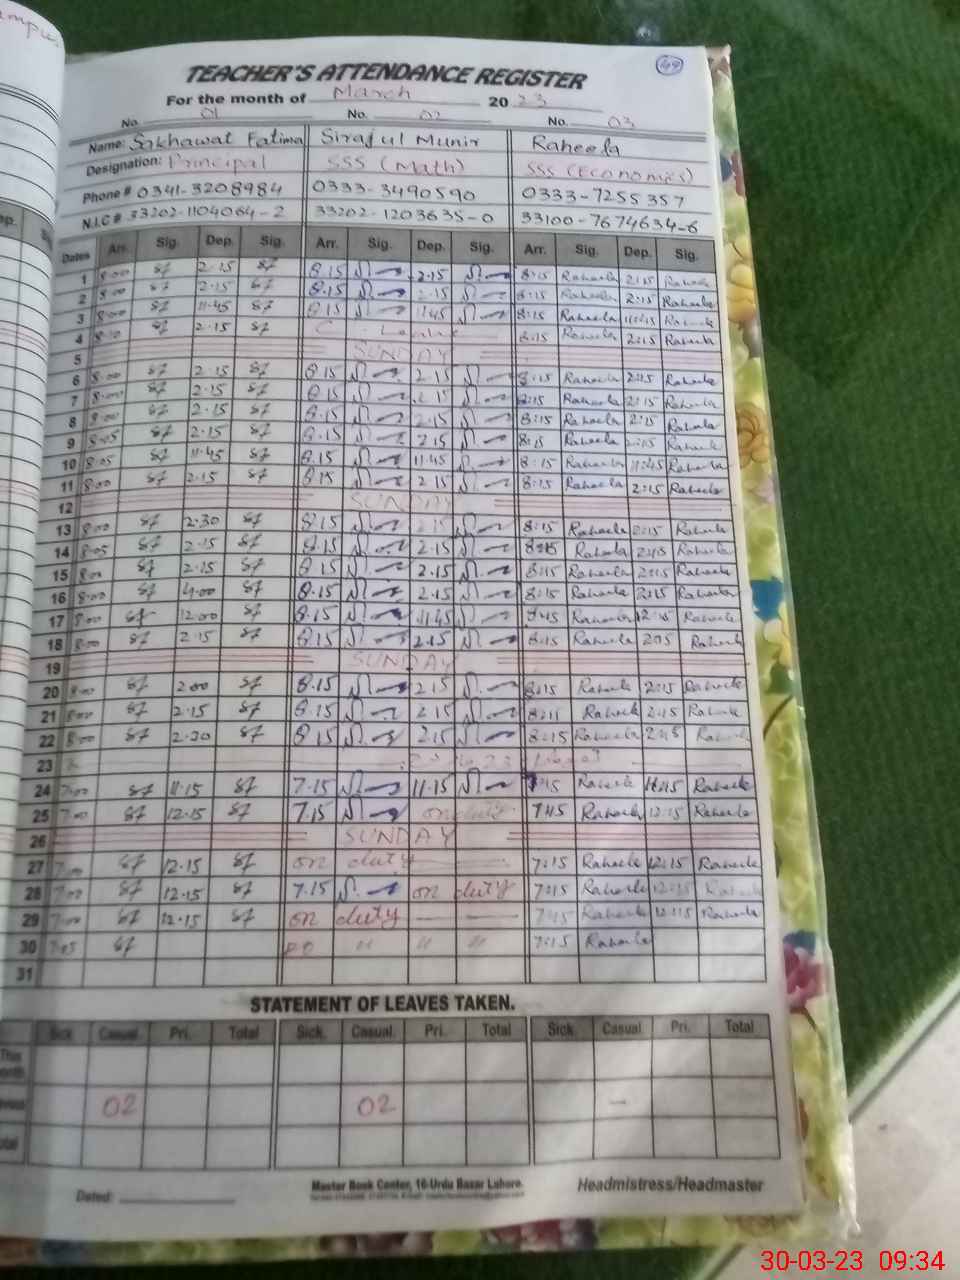 49
TEACHER'S ATTENDANCE REGISTER
For the month of March 2023
No. 01 No. 02 No. 03
Name: Sakhawat Fatima Sirajul Munir Raheela
Designation: Principal SSS (Math) SSS (Economics)
Phone # 0341-3208984 0333-3490590 0333-7255357
N.I.C # 33202-1104064-2 33202-1203635-0 33100-7674634-6
Dates Arr. Sig. Dep. Sig. Arr. Sig. Dep. Sig. Arr. Sig. Dep. Sig.
1 8:00 2.15 8.15 2.15 8:15 Raheela 2:15 Raheela
2 8:00 2.15 8.15 2.15 8:15 Raheela 2:15 Raheela
3 8:00 11.45 8.15 11.45 8:15 Raheela 11:45 Raheela
4 8:00 2.15 C. Leave 8:15 Raheela 2:15 Raheela
5 SUNDAY
6 8:00 2.15 8.15 2.15 8:15 Raheela 2:15 Raheela
7 8:00 2.15 8.15 2.15 8:15 Raheela 2:15 Raheela
8 8:00 2.15 8.15 2.15 8:15 Raheela 2:15 Raheela
9 8:05 2.15 8.15 2.15 8:15 Raheela 2:15 Raheela
10 8:05 11.45 8.15 11.45 8:15 Raheela 11:45 Raheela
11 8:00 2.15 8.15 2.15 8:15 Raheela 2:15 Raheela
12 SUNDAY
13 8:00 2.30 8.15 2.15 8:15 Raheela 2:15 Raheela
14 8:05 2.15 8.15 2.15 8:15 Raheela 2:15 Raheela
15 8:00 2.15 8.15 2.15 8:15 Raheela 2:15 Raheela
16 8:00 4.00 8.15 2.15 8:15 Raheela 2:15 Raheela
17 8:00 12.00 8.15 11.45 Raheela Raheela
18 8:00 2.15 8.15 2.15 8:15 Raheela 2:15 Raheela
19 SUNDAY
20 8:00 2.00 8.15 2.15 8:15 Raheela 2:15 Raheela
21 8:00 2.15 8.15 2.15 8:15 Raheela 2:15 Raheela
22 8:00 2.30 8.15 2.15 8:15 Raheela 2:15 Raheela
23
24 7:00 11.15 7.15 11.15 Raheela Raheela
25 7:00 12.15 7.15 on duty Raheela 12:15 Raheela
26 SUNDAY
27 7:00 12.15 on duty 7:15 Raheela 12:15 Raheela
28 7:00 12.15 7.15 on duty 7:15 Raheela 12:15 Raheela
29 7:00 12.15 on duty Raheela 12:15 Raheela
30 7:05 " " " 7:15 Raheela
31
STATEMENT OF LEAVES TAKEN.
Sick Casual Pri. Total Sick. Casual. Pri. Total Sick. Casual Pri. Total
This
02 02 –
Dated:
Master Book Center, 16-Urdu Bazar Lahore.
Headmistress/Headmaster
30-03-23 09:34